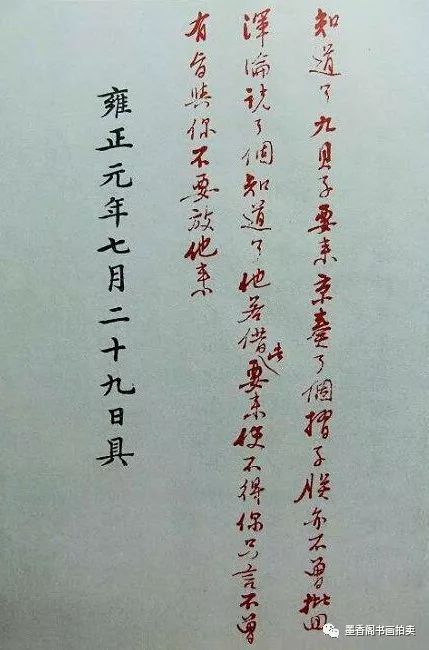 知道了九貝子要来京奏了個摺子朕亦不曽批回
渾淪説了個知道了他若借此要来使不得你只言不曽
有旨與你不要放他来
雍正元年七月二十九日具
墨香阁书画拍卖